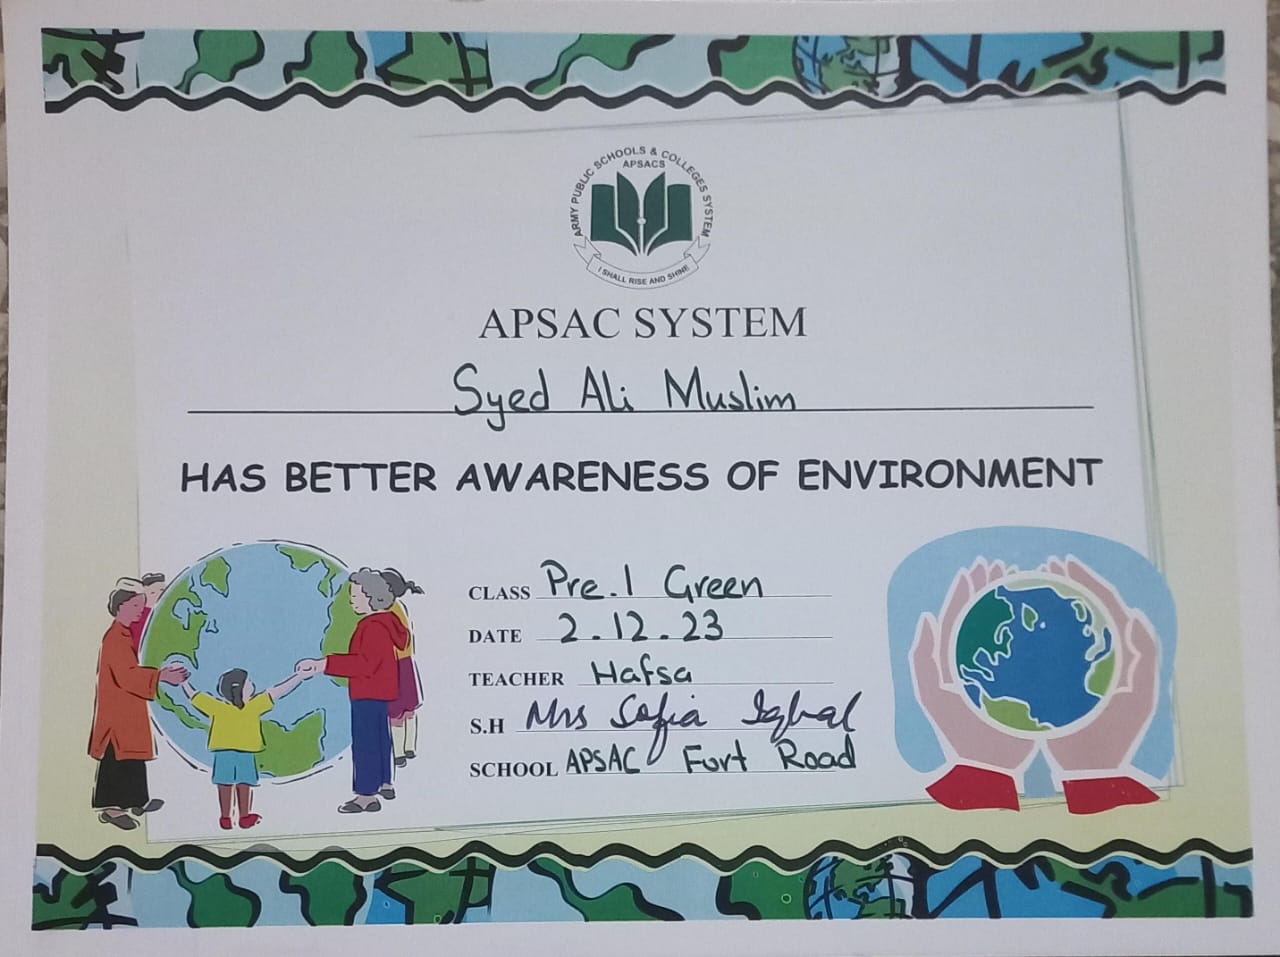 ARMY PUBLIC SCHOOLS & COLLEGES SYSTEM
APSACS
I SHALL RISE AND SHINE
APSAC SYSTEM
Syed Ali Muslim
HAS BETTER AWARENESS OF ENVIRONMENT
CLASS Pre.1 Green
DATE 2.12.23
TEACHER Hafsa
S.H Mrs Safia Iqbal
SCHOOL APSAC Fort Road